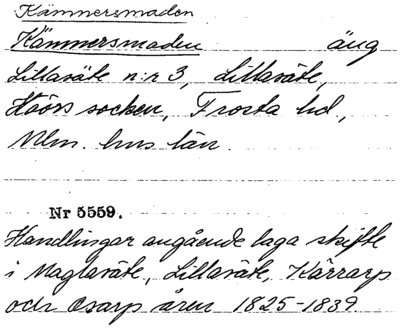 Kämmersmaden
Kämmersmaden äng
Lillasäte n:r 3, Lillasäte,
Höörs socken, Frosta hd,
Mlm. hus län.
Nr 5559.
Handlingar angående laga skifte
i Maglasäte, Lillasäte, Kärrarp
och Osarp åren 1825-1839